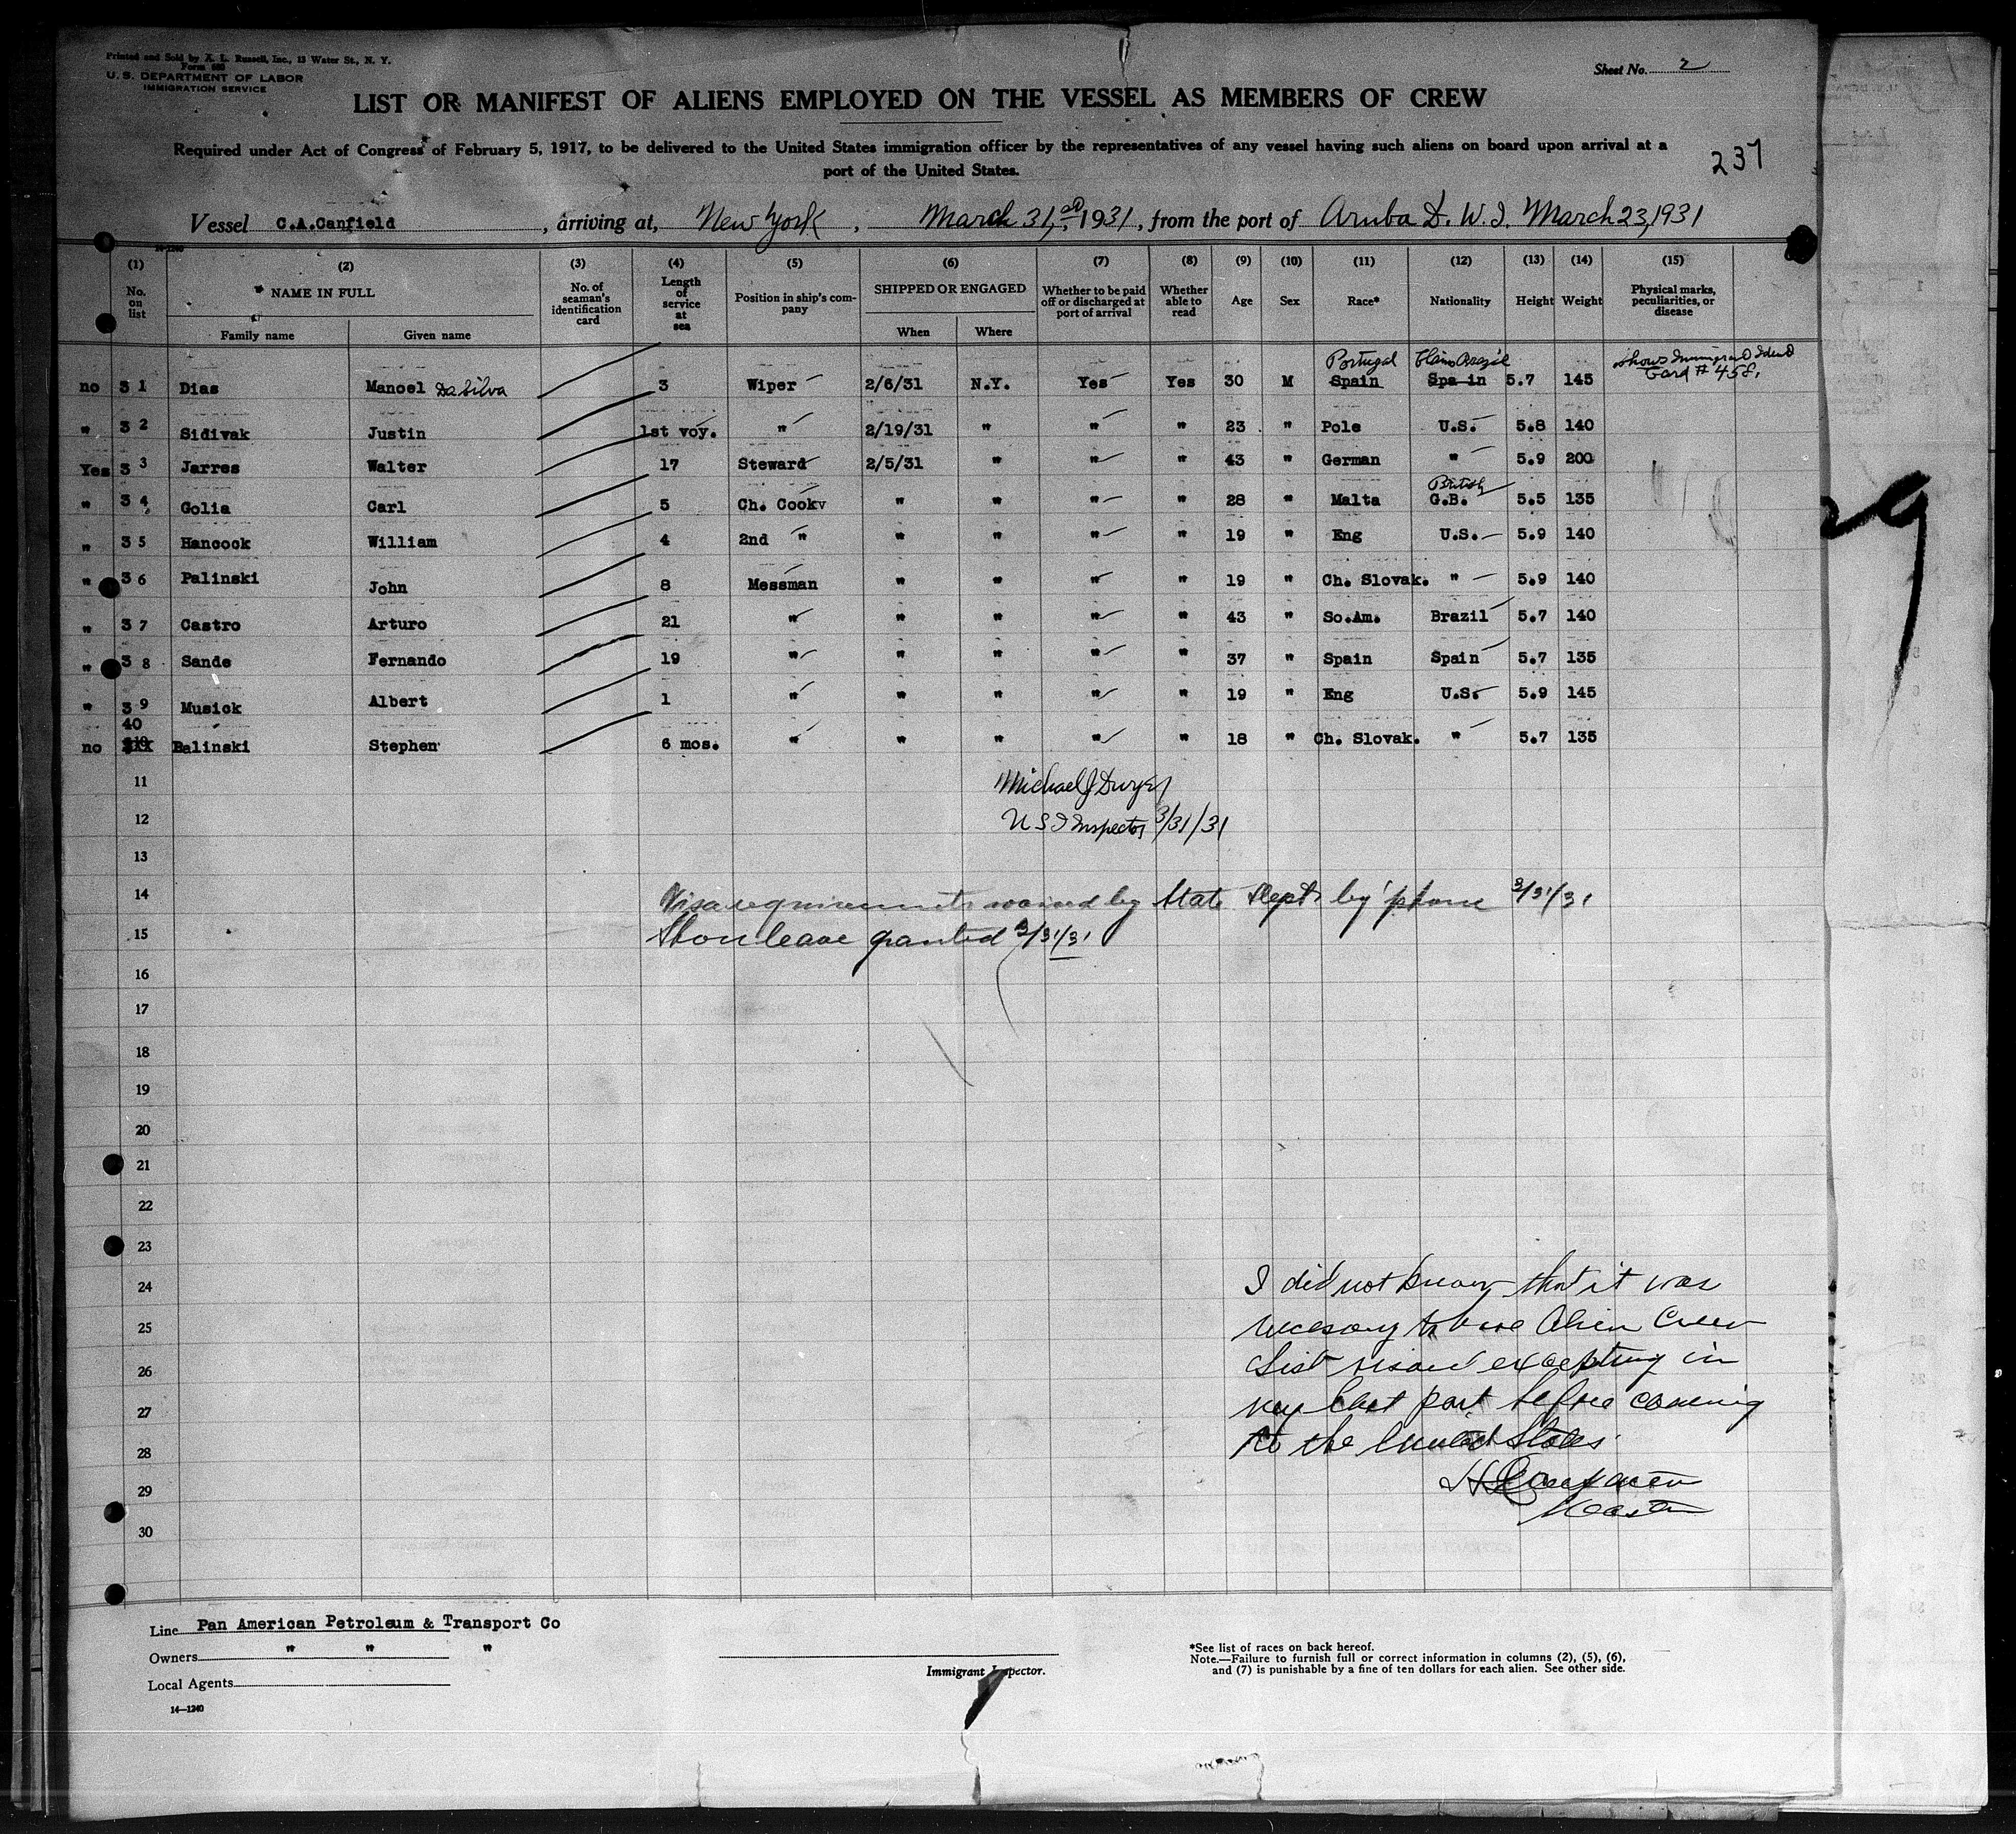 Printed and Sold by X. L. Russell, Inc., 13 Water St., N. Y.
Form 680
U. S. DEPARTMENT OF LABOR
IMMIGRATION SERVICE
Sheet No. 2
LIST OR MANIFEST OF ALIENS EMPLOYED ON THE VESSEL AS MEMBERS OF CREW
Required under Act of Congress of February 5, 1917, to be delivered to the United States immigration officer by the representatives of any vessel having such aliens on board upon arrival at a
port of the United States.
237
Vessel C.A.Canfield, arriving at, New York, March 31, 1931, from the port of Aruba D. W. I. March 23, 1931
14-1240
(1) (2) (3) (4) (5) (6) (7) (8) (9) (10) (11) (12) (13) (14) (15)
No. on list NAME IN FULL Family name Given name No. of seaman's identification card Length of service at sea Position in ship's company SHIPPED OR ENGAGED When Where Whether to be paid off or discharged at port of arrival Whether able to read Age Sex Race* Nationality Height Weight Physical marks, peculiarities, or disease
Portugal Claims Brazil shows Immigrant Ident
no 31 Dias Manoel Da Silva 3 Wiper 2/6/31 N.Y. Yes Yes 30 M Spain Spain 5.7 145 Card # 458.
" 32 Sidivak Justin 1st voy. " 2/19/31 " " " 23 " Pole U.S. 5.8 140
Yes 33 Jarres Walter 17 Steward 2/5/31 " " " 43 " German " 5.9 200
British
" 34 Golia Carl 5 Ch. Cook " " " " 28 " Malta G.B. 5.5 135
" 35 Hancock William 4 2nd " " " " " 19 " Eng U.S. 5.9 140
" 36 Palinski John 8 Messman " " " " 19 " Ch. Slovak. " 5.9 140
" 37 Castro Arturo 21 " " " " " 43 " So.Am. Brazil 5.7 140
" 38 Sande Fernando 19 " " " " " 37 " Spain Spain 5.7 135
" 39 Musick Albert 1 " " " " " 19 " Eng U.S. 5.9 145
40
no Balinski Stephen 6 mos. " " " " " 18 " Ch. Slovak. " 5.7 135
11 Michael J Dwyer
12 U S I Inspector 3/31/31
13
14 Visa requirements waived by State Dept by 'phone 3/31/31
15 Shore leave granted 3/31/31
16
17
18
19
20
21
22
23
24 I did not know that it was
25 necessary to have Alien Crew
26 List visaed excepting in
27 my last port before coming
28 to the United States.
29 Master
30
Line Pan American Petroleum & Transport Co
Owners " " "
Local Agents
14—1240
Immigrant Inspector.
*See list of races on back hereof.
Note.—Failure to furnish full or correct information in columns (2), (5), (6),
and (7) is punishable by a fine of ten dollars for each alien. See other side.